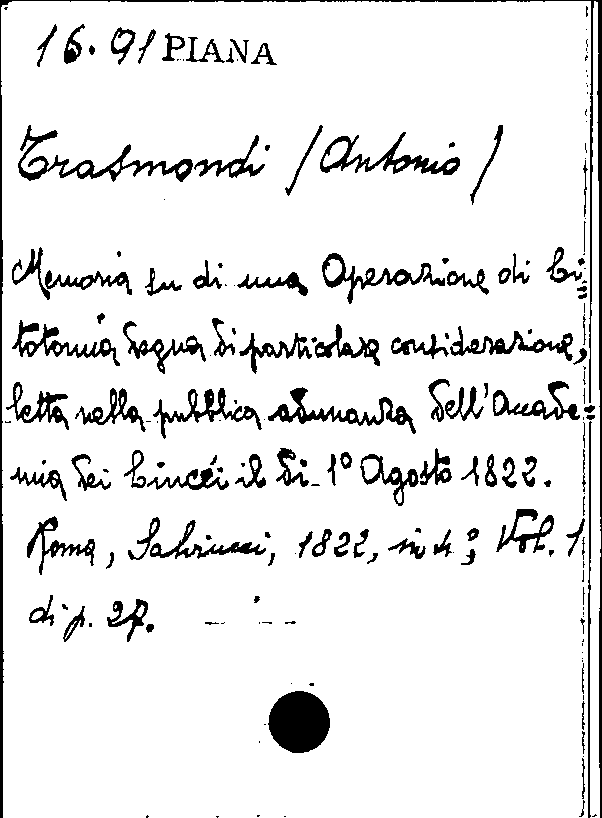 16. 91 PIANA
Trasmondi (Antonio)
Memoria su di una Operazione di Li=
totomia degna di particolare considerazione,
letta nella pubblica adunanza dell'Accade=
mia dei Lincei il dì 1° Agosto 1822.
Roma, Salviucci, 1822, in 4°, Vol. 1
di p. 27.